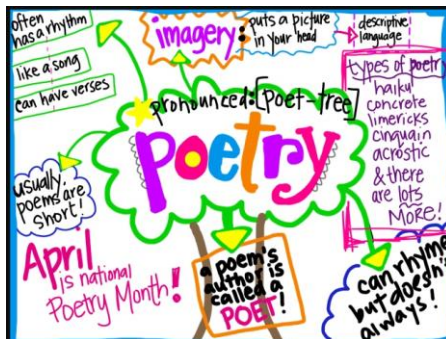 often
has a rhythm
like a song
can have verses
imagery:
puts a picture
in your head
descriptive
language
types of poetry
haiku
concrete
limericks
cinquain
acrostic
& there
are lots
MORE!
pronounced:[poet-tree]
poetry
usually,
poems are
short!
April
is national
Poetry Month!
a poem's
author is
called a
POET!
can rhyme
but doesn't
always!